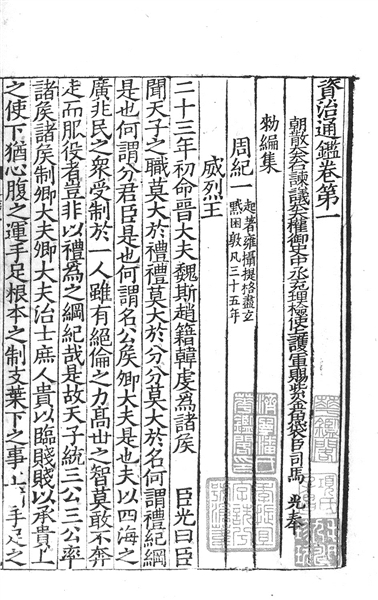 資治通鑑卷第一
朝散大夫右諫議大夫權御史中丞充理檢使上護軍賜紫金魚袋臣司馬 光奉
勑編集
周紀一 起著雍攝提格盡玄
黓困敦凡三十五年
威烈王
二十三年初命晉大夫魏斯趙籍韓虔爲諸侯 臣光曰臣
聞天子之職莫大於禮禮莫大於分分莫大於名何謂禮紀綱
是也何謂分君臣是也何謂名公侯卿大夫是也夫以四海之
廣兆民之衆受制於一人雖有絕倫之力高世之智莫敢不奔
走而服役者豈非以禮爲之綱紀哉是故天子統三公三公率
諸侯諸侯制卿大夫卿大夫治士庶人貴以臨賤賤以承貴上
之使下猶心腹之運手足根本之制支葉下之事上 手足之